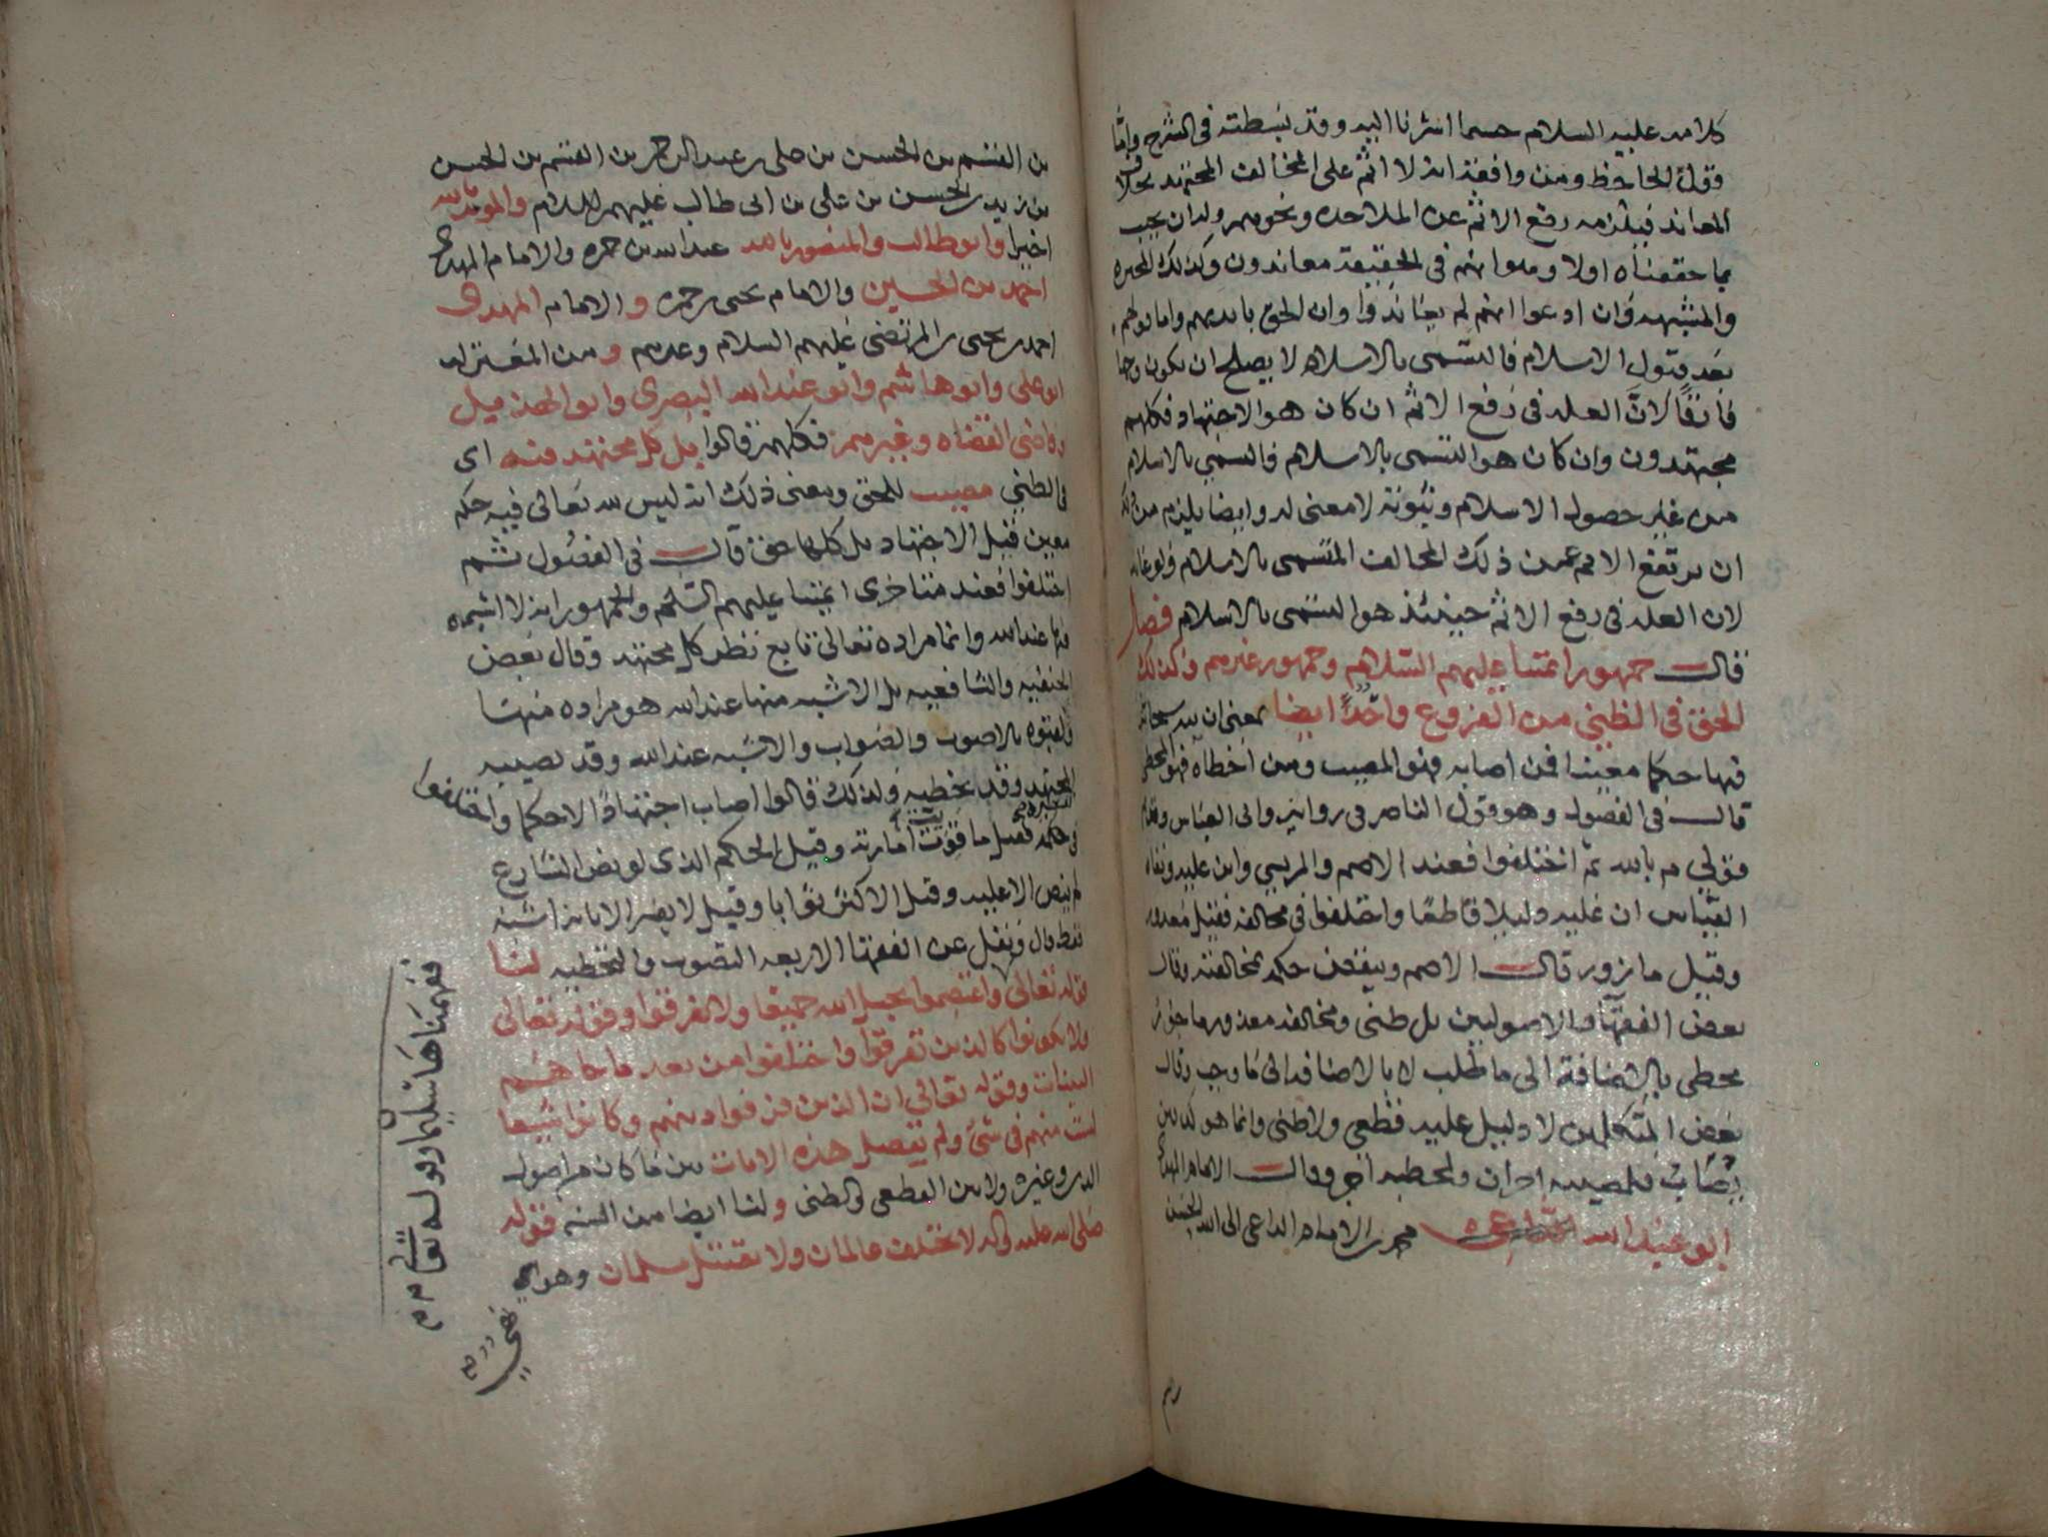 كلامه عليه السلام حسما اشرنا اليه وقد بسطته في الشرح واما
قول الجاحظ ومن وافقه انه لا اثم على المخالف المجتهد بخلاف
المعاند فيلزمه رفع الاثم عن الملاحده ونحوهم وله ان يجيب
بما حققناه اولا وهوا انهم في الحقيقة معاندون وكذلك المجبره
والمشبهه وان ادعوا انهم لم يعاندوا وان الحق بايديهم واما قولهم
بعد قبول الاسلام فالتسمى بالاسلام لا يصلح ان يكون وجها
فارقًا لانَّ العله في رفع الاثم ان كان هو الاجتهاد فكلهم
مجتهدون وان كان هو التسمى بالاسلام فالتسمي بالاسلام
من غير حصول الاسلام وثبوته لا معنى له وايضا يلزم من ذلك
ان يرتفع الاثم عمن ذلك المخالف المتسمى بالاسلام ولو عاند
لان العله في رفع الاثم حينئذ هو التسمى بالاسلام فصل
قال جمهور ائمتنا عليهم السلام وجمهور غيرهم وكذلك
الحق في الظني من الفروع واحدًا ايضا بمعنى ان لله سبحانه
فيها حكما معينا فمن اصابه فهو المصيب ومن اخطاه فهو المخطي
قال في الفصول وهو قول الناصر في روايه وابي العباس وقديم
قولي م بالله ثم اختلفوا فعند الاصم والمريسي وابن عليه ونفاه
القياس ان عليه دليلا قاطعًا واختلفوا في مخالفه فقيل معذور
وقيل مازور قال الاصم وينقض حكمه بمخالفته وقال
بعض الفقها والاصوليين بل ظني ومخالفه معذور ماجور
مخطي بالاضافة الى ما طلب لا بالاضافه الى ما وجب وقال
بعض المتكلمين لا دليل عليه قطعي ولا ظني وانما هو كدفين
يصاب فلمصيبه اجران ولمخطيه اجر وقال الامام المهدي
ابو عبد الله محمد بن الامام الداعي الى الله الحسن
بن القسم بن الحسن بن علي بن عبد الرحمن بن القسم بن الحسن
بن زيد بن الحسن بن علي بن ابي طالب عليهم السلام والمويد بالله
اخيرا وابو طالب والمنصور بالله عبد الله بن حمزه والامام المهدي
احمد بن الحسين والامام يحيى بن حمزه والامام المهدي
احمد بن يحيى بن المرتضى عليهم السلام وغيرهم ومن المعتزله
ابو علي وابو هاشم وابو عبد الله البصري وابو الهذيل
وقاضي القضاه وغيرهم فكلهم قالوا بل كل مجتهد فيه اي
في الظني مصيب للحق ومعنى ذلك انه ليس لله تعالى فيه حكم
معين قبل الاجتهاد بل كلها حق قال في الفصول ثم
اختلفوا فعند متاخري ائمتنا عليهم السلم والجمهور انه لا اشبه
فيها عند الله وانما مراده تعالى تابع لنظر كل مجتهد وقال بعض
الحنفيه والشافعيه بل الاشبه منها عند الله هو مراده منها
ولقبوه بالاصوب والصواب والاشبه عند الله وقد يصيبه
المجتهد وقد يخطيه ولذلك قالوا اصاب اجتهادًا لا حكما واختلفوا
في حكمه فقيل ما قويت امارته وقيل الحكم الذي لو نص الشارع
لم ينص الا عليه وقيل الاكثر ثوابا وقيل لا يفسر الا بانه اشبه
فقط قال ونقل عن الفقها الاربعه التصويب والتخطيه لنا
قوله تعالى واعتصموا بحبل الله جميعا ولا تفرقوا وقوله تعالى
ولا تكونوا كالذين تفرقوا واختلفوا من بعد ما جاهم
البينات وقوله تعالى ان الذين فرقوا دينهم وكانوا شيعا
لست منهم في شيء ولم تفصل هذه الايات بين ما كان من اصول
الدين وغيره ولا بين القطعي والظني ولنا ايضا من السنه قوله
صلى الله عليه واله لا يختلف عالمان ولا يقتتل مسلمان وهو
نفي
ففهمناها سليمان وقوله تعالى